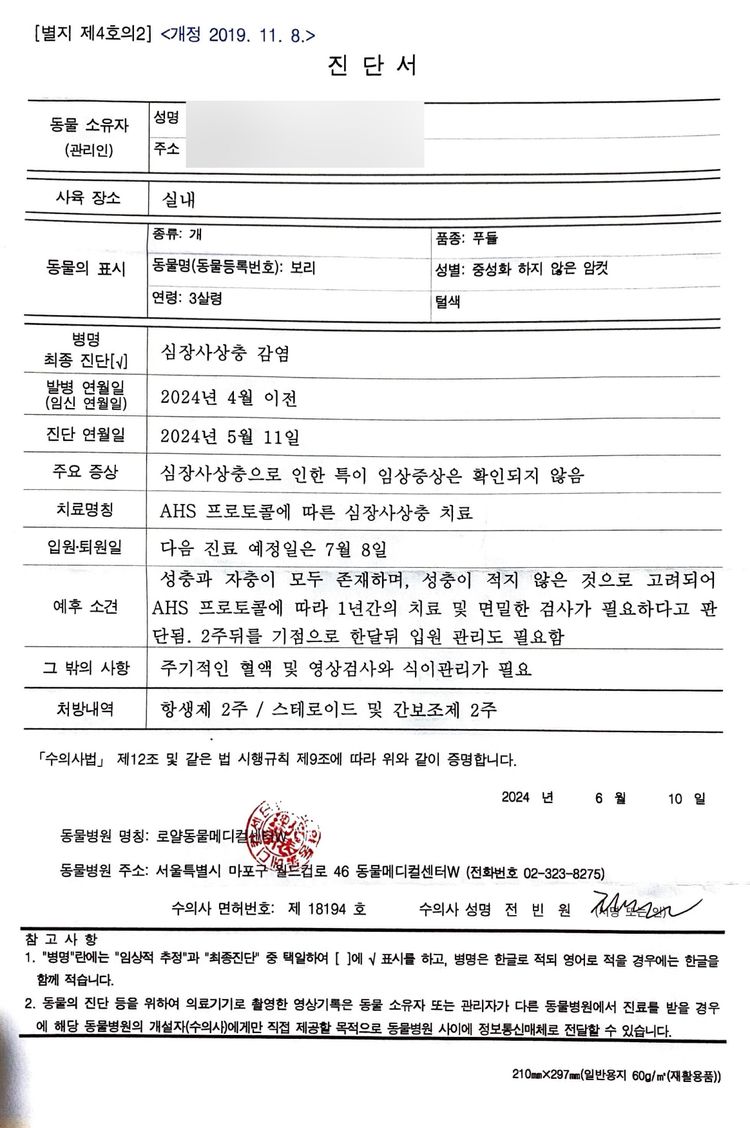 [별지 제4호의2] <개정 2019. 11. 8.>
진 단 서
동물 소유자
(관리인)
성명
주소
사육 장소
실내
동물의 표시
종류: 개
품종: 푸들
동물명(동물등록번호): 보리
성별: 중성화 하지 않은 암컷
연령: 3살령
털색
병명
최종 진단[√]
심장사상충 감염
발병 연월일
(임신 연월일)
2024년 4월 이전
진단 연월일
2024년 5월 11일
주요 증상
심장사상충으로 인한 특이 임상증상은 확인되지 않음
치료명칭
AHS 프로토콜에 따른 심장사상충 치료
입원·퇴원일
다음 진료 예정일은 7월 8일
예후 소견
성충과 자충이 모두 존재하며, 성충이 적지 않은 것으로 고려되어
AHS 프로토콜에 따라 1년간의 치료 및 면밀한 검사가 필요하다고 판
단됨. 2주뒤를 기점으로 한달뒤 입원 관리도 필요함
그 밖의 사항
주기적인 혈액 및 영상검사와 식이관리가 필요
처방내역
항생제 2주 / 스테로이드 및 간보조제 2주
「수의사법」 제12조 및 같은 법 시행규칙 제9조에 따라 위와 같이 증명합니다.
2024 년 6 월 10 일
동물병원 명칭: 로얄동물메디컬센터W
동물병원 주소: 서울특별시 마포구 월드컵로 46 동물메디컬센터W (전화번호 02-323-8275)
수의사 면허번호: 제 18194 호 수의사 성명 전 빈 원 (서명 또는 인)
참 고 사 항
1. "병명"란에는 "임상적 추정"과 "최종진단" 중 택일하여 [ ]에 √ 표시를 하고, 병명은 한글로 적되 영어로 적을 경우에는 한글을
함께 적습니다.
2. 동물의 진단 등을 위하여 의료기기로 촬영한 영상기록은 동물 소유자 또는 관리자가 다른 동물병원에서 진료를 받을 경우
에 해당 동물병원의 개설자(수의사)에게만 직접 제공할 목적으로 동물병원 사이에 정보통신매체로 전달할 수 있습니다.
210㎜×297㎜(일반용지 60g/㎡(재활용품))